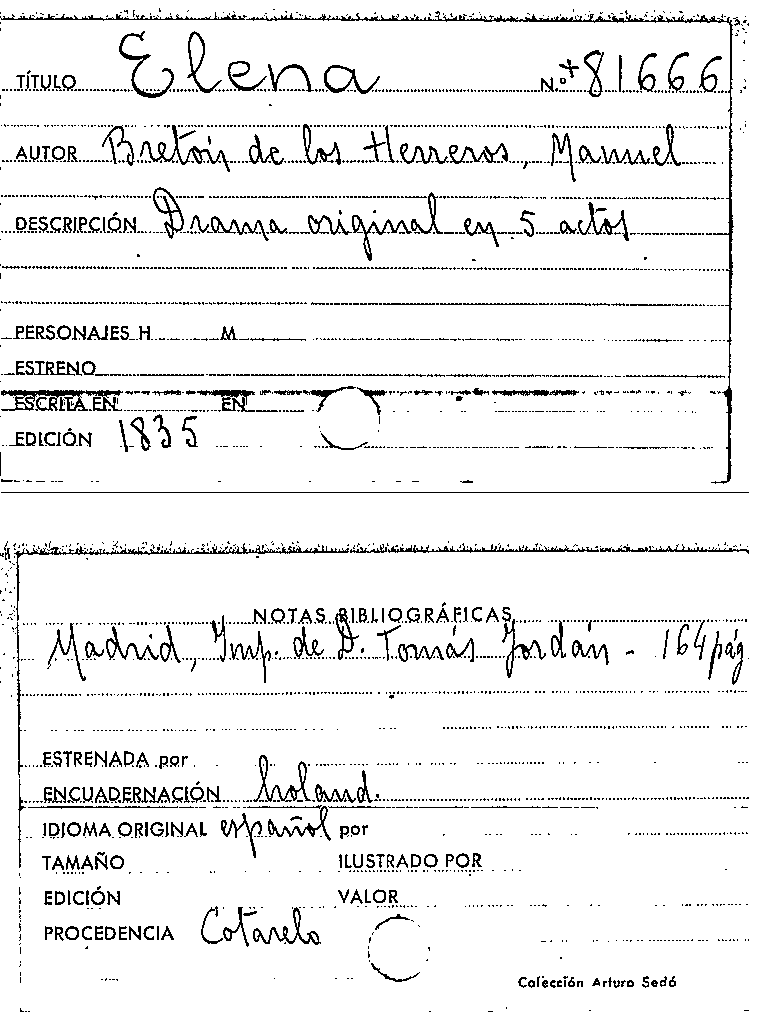 TÍTULO Elena N.º + 81666
AUTOR Bretón de los Herreros, Manuel
DESCRIPCIÓN Drama original en 5 actos
PERSONAJES H M
ESTRENO
ESCRITA EN EN
EDICIÓN 1835
NOTAS BIBLIOGRÁFICAS
Madrid, Imp. de D. Tomás Jordán - 164 pág
ESTRENADA por
ENCUADERNACIÓN holand.
IDIOMA ORIGINAL español por
TAMAÑO ILUSTRADO POR
EDICIÓN VALOR
PROCEDENCIA Cotarelo
Colección Arturo Sedó